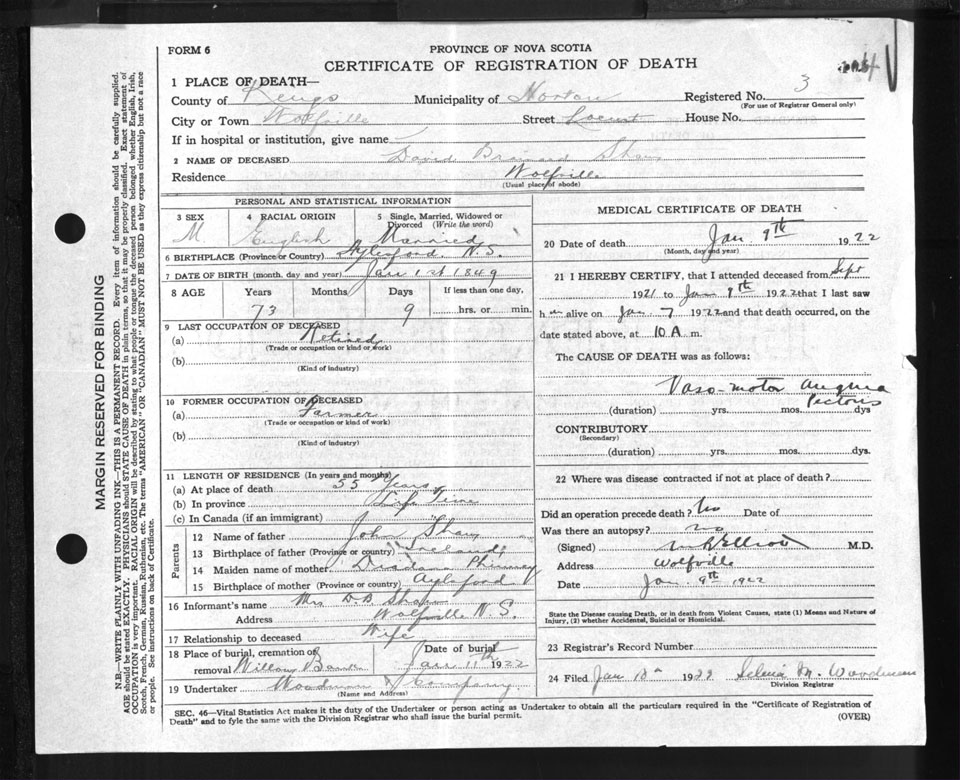 FORM 6
PROVINCE OF NOVA SCOTIA
CERTIFICATE OF REGISTRATION OF DEATH
1 PLACE OF DEATH—
County of Kings Municipality of Horton Registered No. 3
(For use of Registrar General only)
City or Town Wolfville Street Locust House No.
If in hospital or institution, give name
2 NAME OF DECEASED David Brainard Shaw
Residence Wolfville
(Usual place of abode)
MARGIN RESERVED FOR BINDING
N.B.—WRITE PLAINLY WITH UNFADING INK—THIS IS A PERMANENT RECORD. Every item of information should be carefully supplied.
AGE should be stated EXACTLY. PHYSICIANS should STATE CAUSE OF DEATH in plain terms, so that it may be properly classified. Exact statement of
OCCUPATION is very important. RACIAL ORIGIN will be described by stating to what people or tongue the deceased person belonged whether English, Irish,
Scotch, French, German, Russian, Ruthenian, etc. The terms "AMERICAN" OR "CANADIAN" MUST NOT BE USED as they express citizenship but not a race
or people. See instructions on back of Certificate.
PERSONAL AND STATISTICAL INFORMATION
3 SEX 4 RACIAL ORIGIN 5 Single, Married, Widowed or
Divorced (Write the word)
M English Married
6 BIRTHPLACE (Province or Country) Aylesford. N.S.
7 DATE OF BIRTH (month, day and year) Jan 1st 1849
8 AGE Years Months Days If less than one day,
73 9 hrs. or min.
9 LAST OCCUPATION OF DECEASED
(a) Retired
(Trade or occupation or kind of work)
(b)
(Kind of industry)
10 FORMER OCCUPATION OF DECEASED
(a) Farmer
(Trade or occupation or kind of work)
(b)
(Kind of industry)
11 LENGTH OF RESIDENCE (In years and months)
(a) At place of death 55 Years
(b) In province Life Time
(c) In Canada (if an immigrant)
Parents
12 Name of father John Shaw
13 Birthplace of father (Province or country) Ireland
14 Maiden name of mother Phinney
15 Birthplace of mother (Province or country) Aylesford
16 Informant's name Mrs D.B Shaw
Address Wolfville N.S.
17 Relationship to deceased Wife
18 Place of burial, cremation or Date of burial
removal Willow Bank Jan 11th 1922
19 Undertaker Woodman & Company
(Name and Address)
MEDICAL CERTIFICATE OF DEATH
20 Date of death Jan 9th 1922
(Month, day and year)
21 I HEREBY CERTIFY, that I attended deceased from Sept
1921 to Jan 9th 1922 that I last saw
h im alive on Jan 7 1922 and that death occurred, on the
date stated above, at 10 A m.
The CAUSE OF DEATH was as follows:
Vaso-motor Angina
Pectoris
(duration) yrs. mos. dys.
CONTRIBUTORY
(Secondary)
(duration) yrs. mos. dys.
22 Where was disease contracted if not at place of death?
Did an operation precede death? No Date of
Was there an autopsy? no
(Signed) Elliott M.D.
Address Wolfville
Date Jan 9th 1922
State the Disease causing Death, or in death from Violent Causes, state (1) Means and Nature of
Injury, (2) whether Accidental, Suicidal or Homicidal.
23 Registrar's Record Number
24 Filed Jan 1922 Selina M. Woodman
Division Registrar
SEC. 46—Vital Statistics Act makes it the duty of the Undertaker or person acting as Undertaker to obtain all the particulars required in the "Certificate of Registration of
Death" and to fyle the same with the Division Registrar who shall issue the burial permit. (OVER)